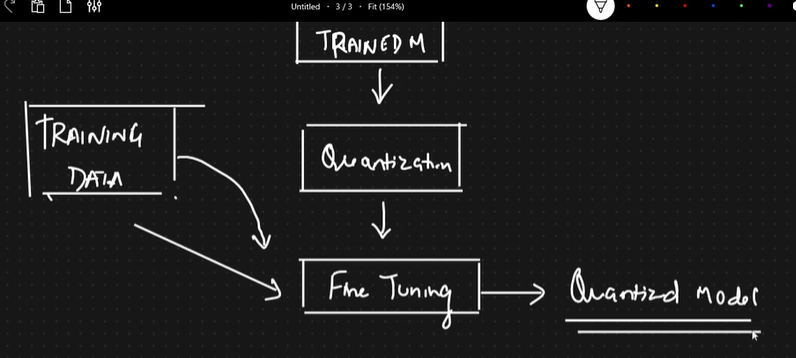 Untitled · 3 / 3 · Fit (154%)
TRAINED M
TRAINING
DATA
Quantization
Fine Tuning
Quantizd Model